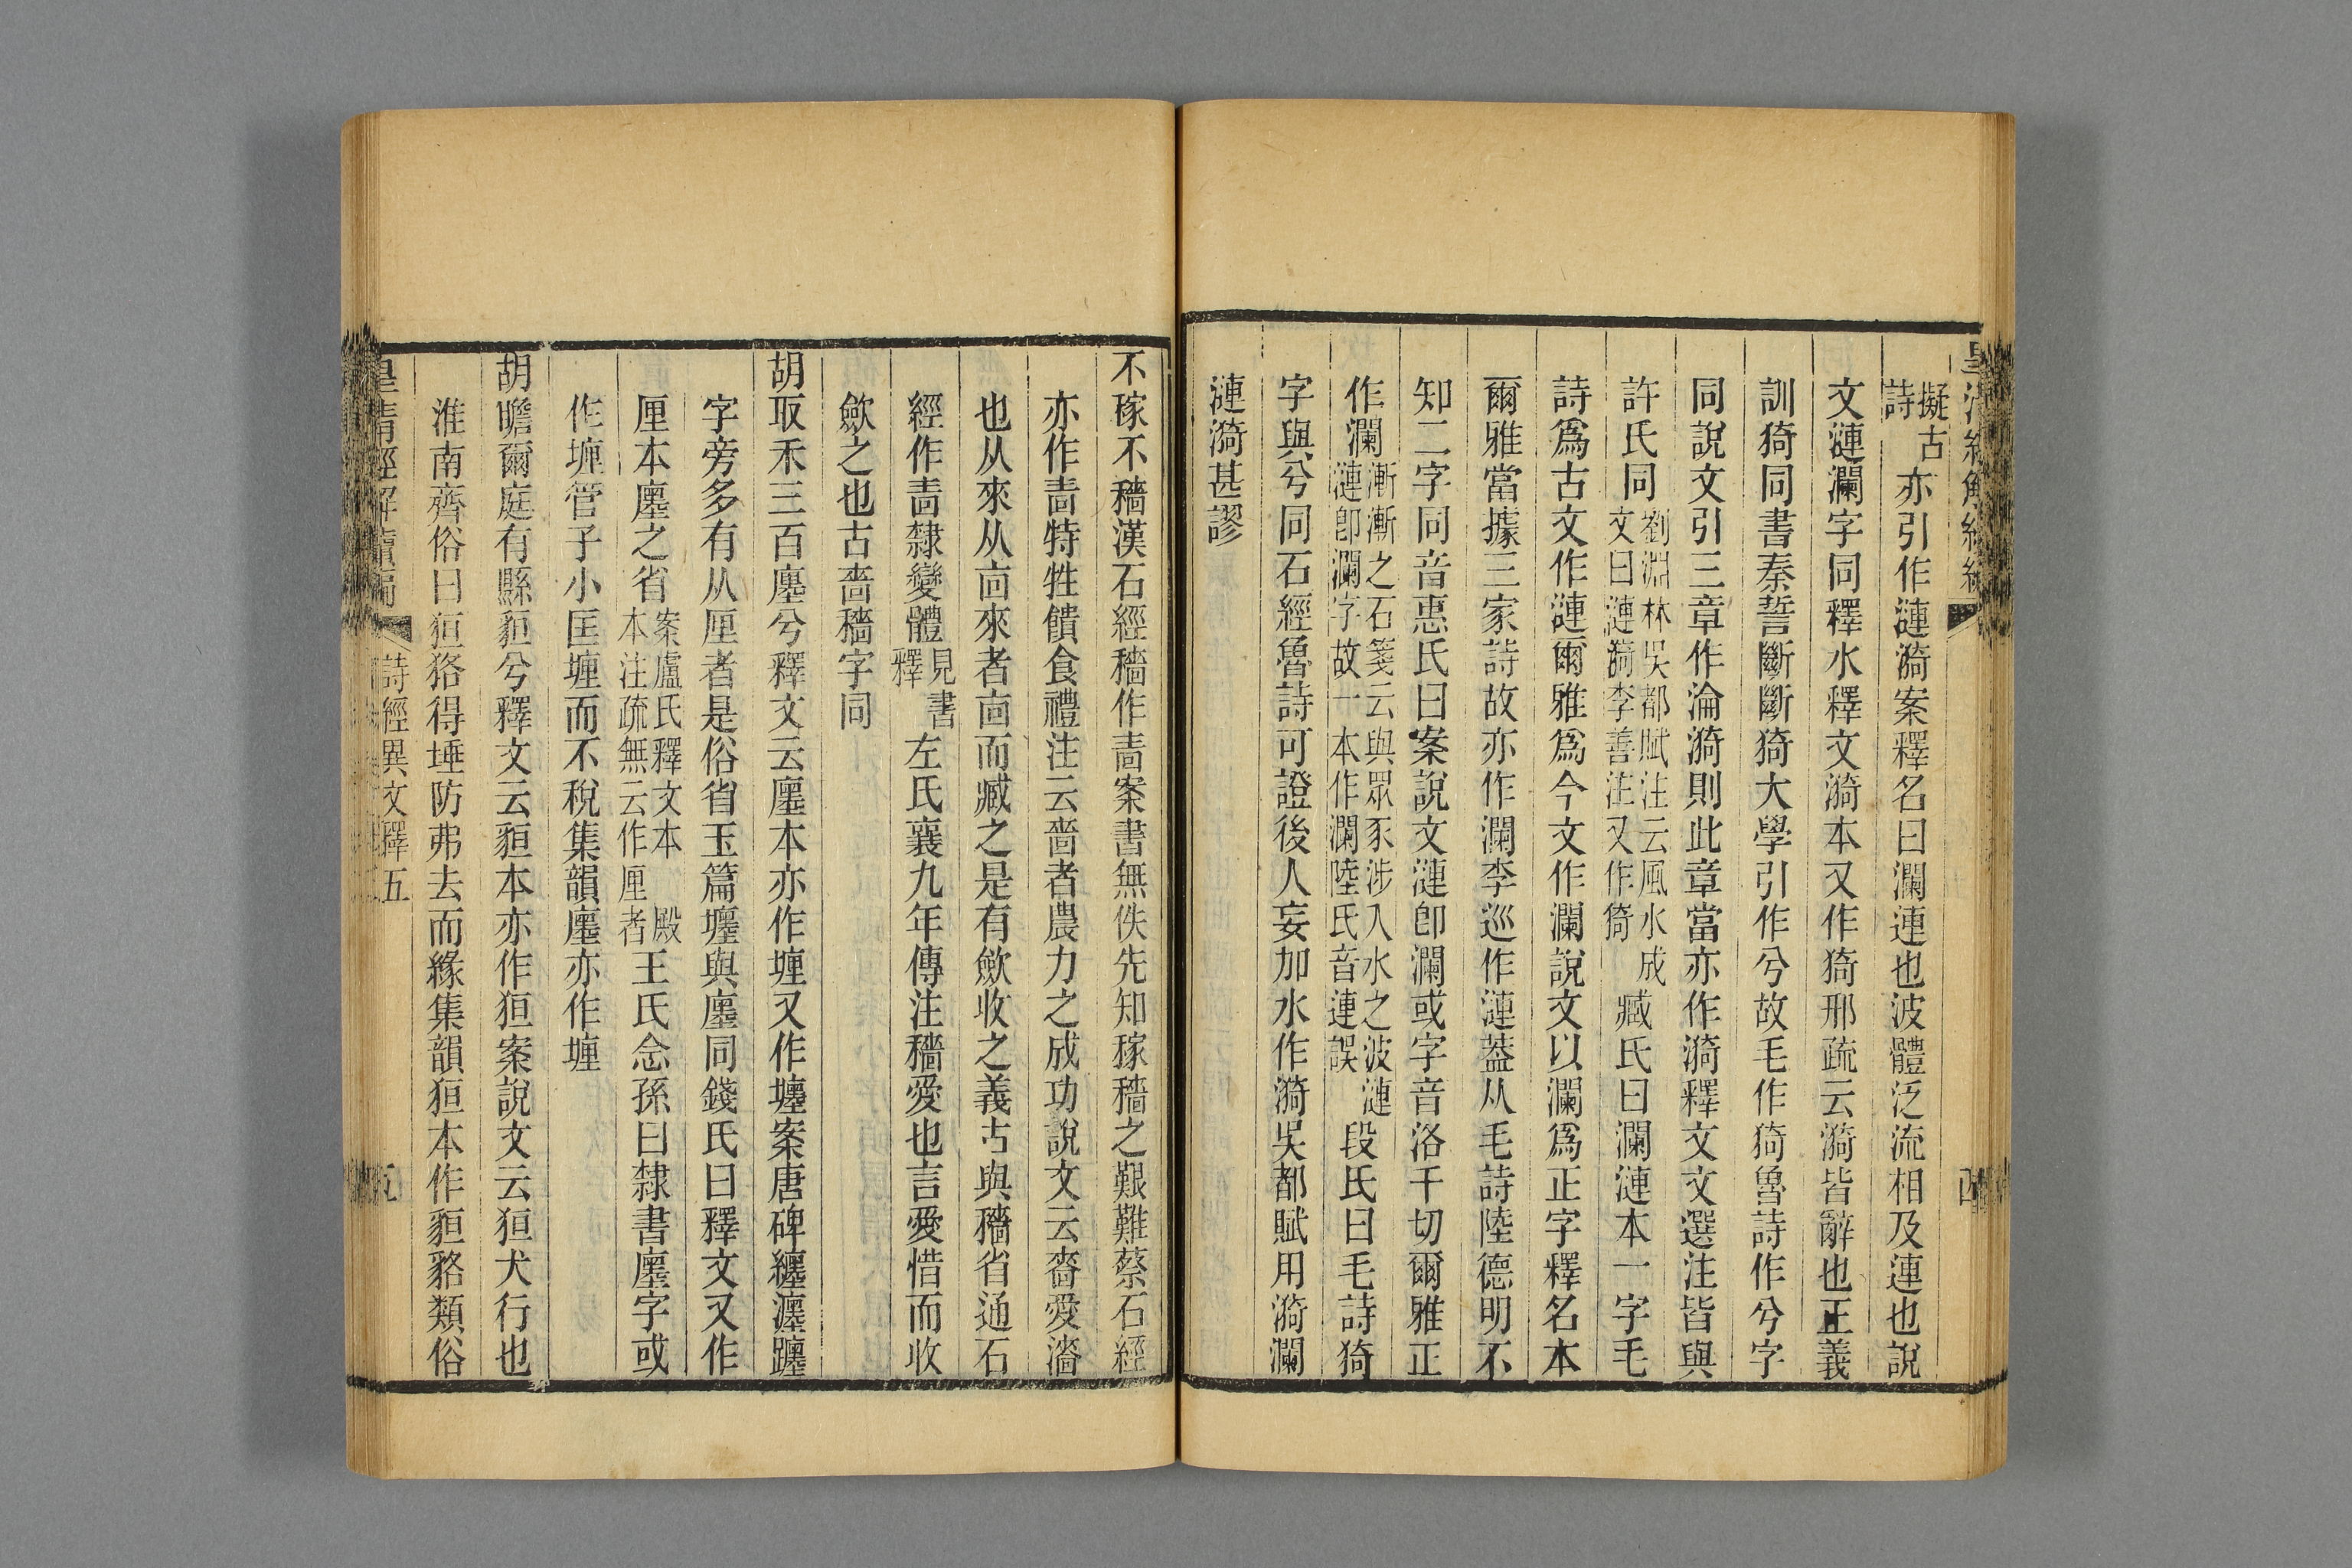 擬古詩亦引作漣漪案釋名曰瀾連也波體泛流相及連也說
文漣瀾字同釋水釋文漪本又作猗邢疏云漪皆辭也正義
訓猗同書秦誓斷斷猗大學引作兮故毛作猗魯詩作兮字
同說文引三章作淪漪則此章當亦作漪釋文文選注皆與
許氏同劉淵林吳都賦注云風水成文曰漣漪李善注又作猗臧氏曰瀾漣本一字毛
詩爲古文作漣爾雅爲今文作瀾說文以瀾爲正字釋名本
爾雅當據三家詩故亦作瀾李巡作漣葢从毛詩陸德明不
知二字同音惠氏曰案說文漣卽瀾或字音洛干切爾雅正
作瀾漸漸之石箋云與眾豕涉入水之波漣漣卽瀾字故一本作瀾陸氏音連誤段氏曰毛詩猗
字與兮同石經魯詩可證後人妄加水作漪吳都賦用漪瀾
漣漪甚謬
不稼不穡漢石經穡作嗇案書無佚先知稼穡之艱難蔡石經
亦作嗇特牲饋食禮注云嗇者農力之成功說文云嗇愛濇
也从來从㐭來者㐭而臧之是有歛收之義古與穡省通石
經作嗇隸變體見書釋左氏襄九年傳注穡愛也言愛惜而收
歛之也古嗇穡字同
胡取禾三百廛兮釋文云廛本亦作㕓又作壥案唐碑纏瀍躔
字旁多有从厘者是俗省玉篇壥與廛同錢氏曰釋文又作
厘本廛之省案盧氏釋文本　殿本注疏無云作厘者王氏念孫曰隸書廛字或
作㙻管子小匡㙻而不稅集韻廛亦作㙻
胡瞻爾庭有縣貆兮釋文云貆本亦作狟案說文云狟犬行也
淮南齊俗曰狟狢得埵防弗去而緣集韻狟本作貆貉類俗
皇清經解續編
詩經異文釋五
五